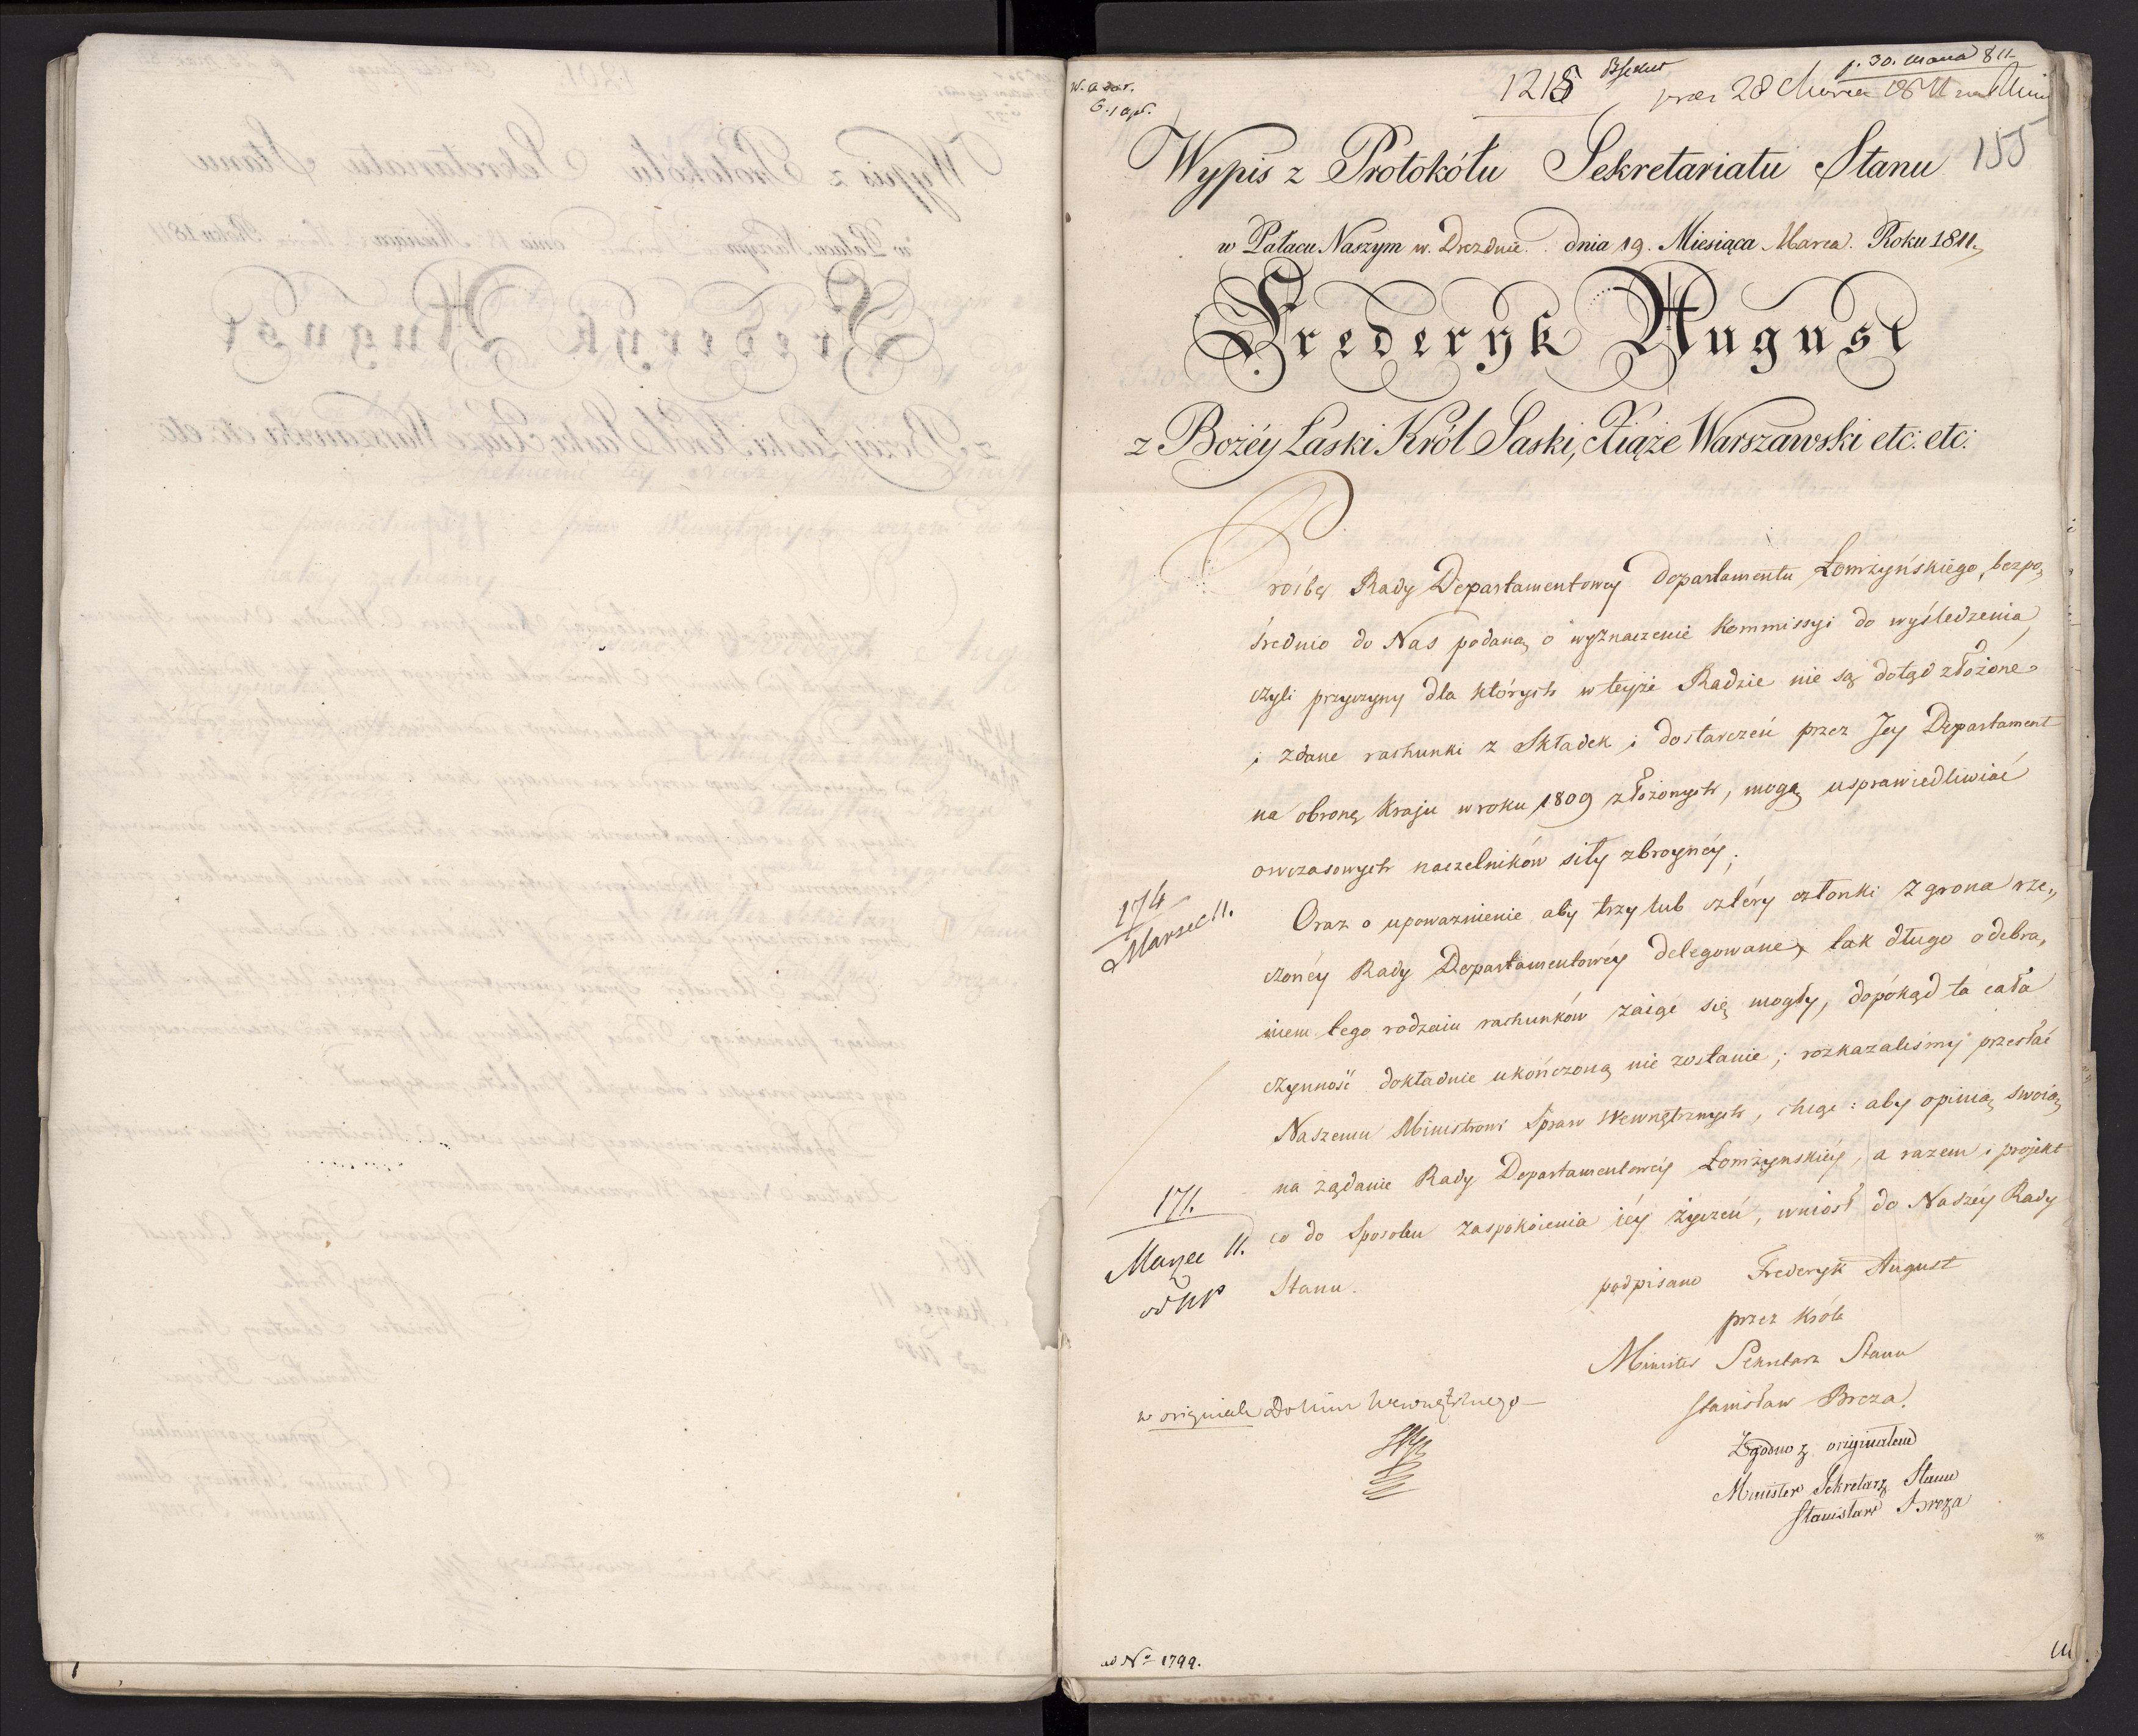 1218
p. 30. marca 811
28 Marca
155
Wypis z Protokółu Sekretariatu Stanu
w Pałacu Naszym w. Dreznie. dnia 19. Miesiąca Marca. Roku 1811,
Frederyk August
z Bożéy Łaski Król Saski, Xiąże Warszawski etc: etc:
Prośbę Rady Departamentowey Departamentu Łomżyńskiego, bezpo„
średnio do Nas podaną, o wyznaczenie Kommissyi do wyśledzenia,
czyli przyczyny dla których w teyże Radzie nie są dotąd złożone
i zdane rachunki z Składek i dostarczeń przez Jey Departament
na obronę Kraju w roku 1809 złożonych, mogą usprawiedliwiać
owczasowych naczelników siły zbroynéy;
174
Marzec 11.
Oraz o upoważnienie aby trzy lub cztéry członki z grona rze„
czonéy Rady Departamentowéy delegowane, tak długo odebra„
niem tego rodzaiu rachunków zaiąć się mogły, dopókąd ta cała
czynność dokładnie ukończoną nie zostanie; rozkazaliśmy przesłać
Naszemu Ministrowi Spraw Wewnętrznych, chcąc: aby opinią swoią
na żądanie Rady Departamentowéy Łomżyńskiéy, a razem i projekt
171.
Marzec 11.
co do Sposobu zaspokoienia iéy życzeń, wniósł do Naszéy Rady
Stanu.
podpisano Frederyk August
przez Króla
Minister Sekretarz Stanu
Stanisław Breza.
w originale do Min Wewnętrznego
Zgodno z originałem
Minister Sekretarz Stanu
Stanisław Breza
ad No 1799.